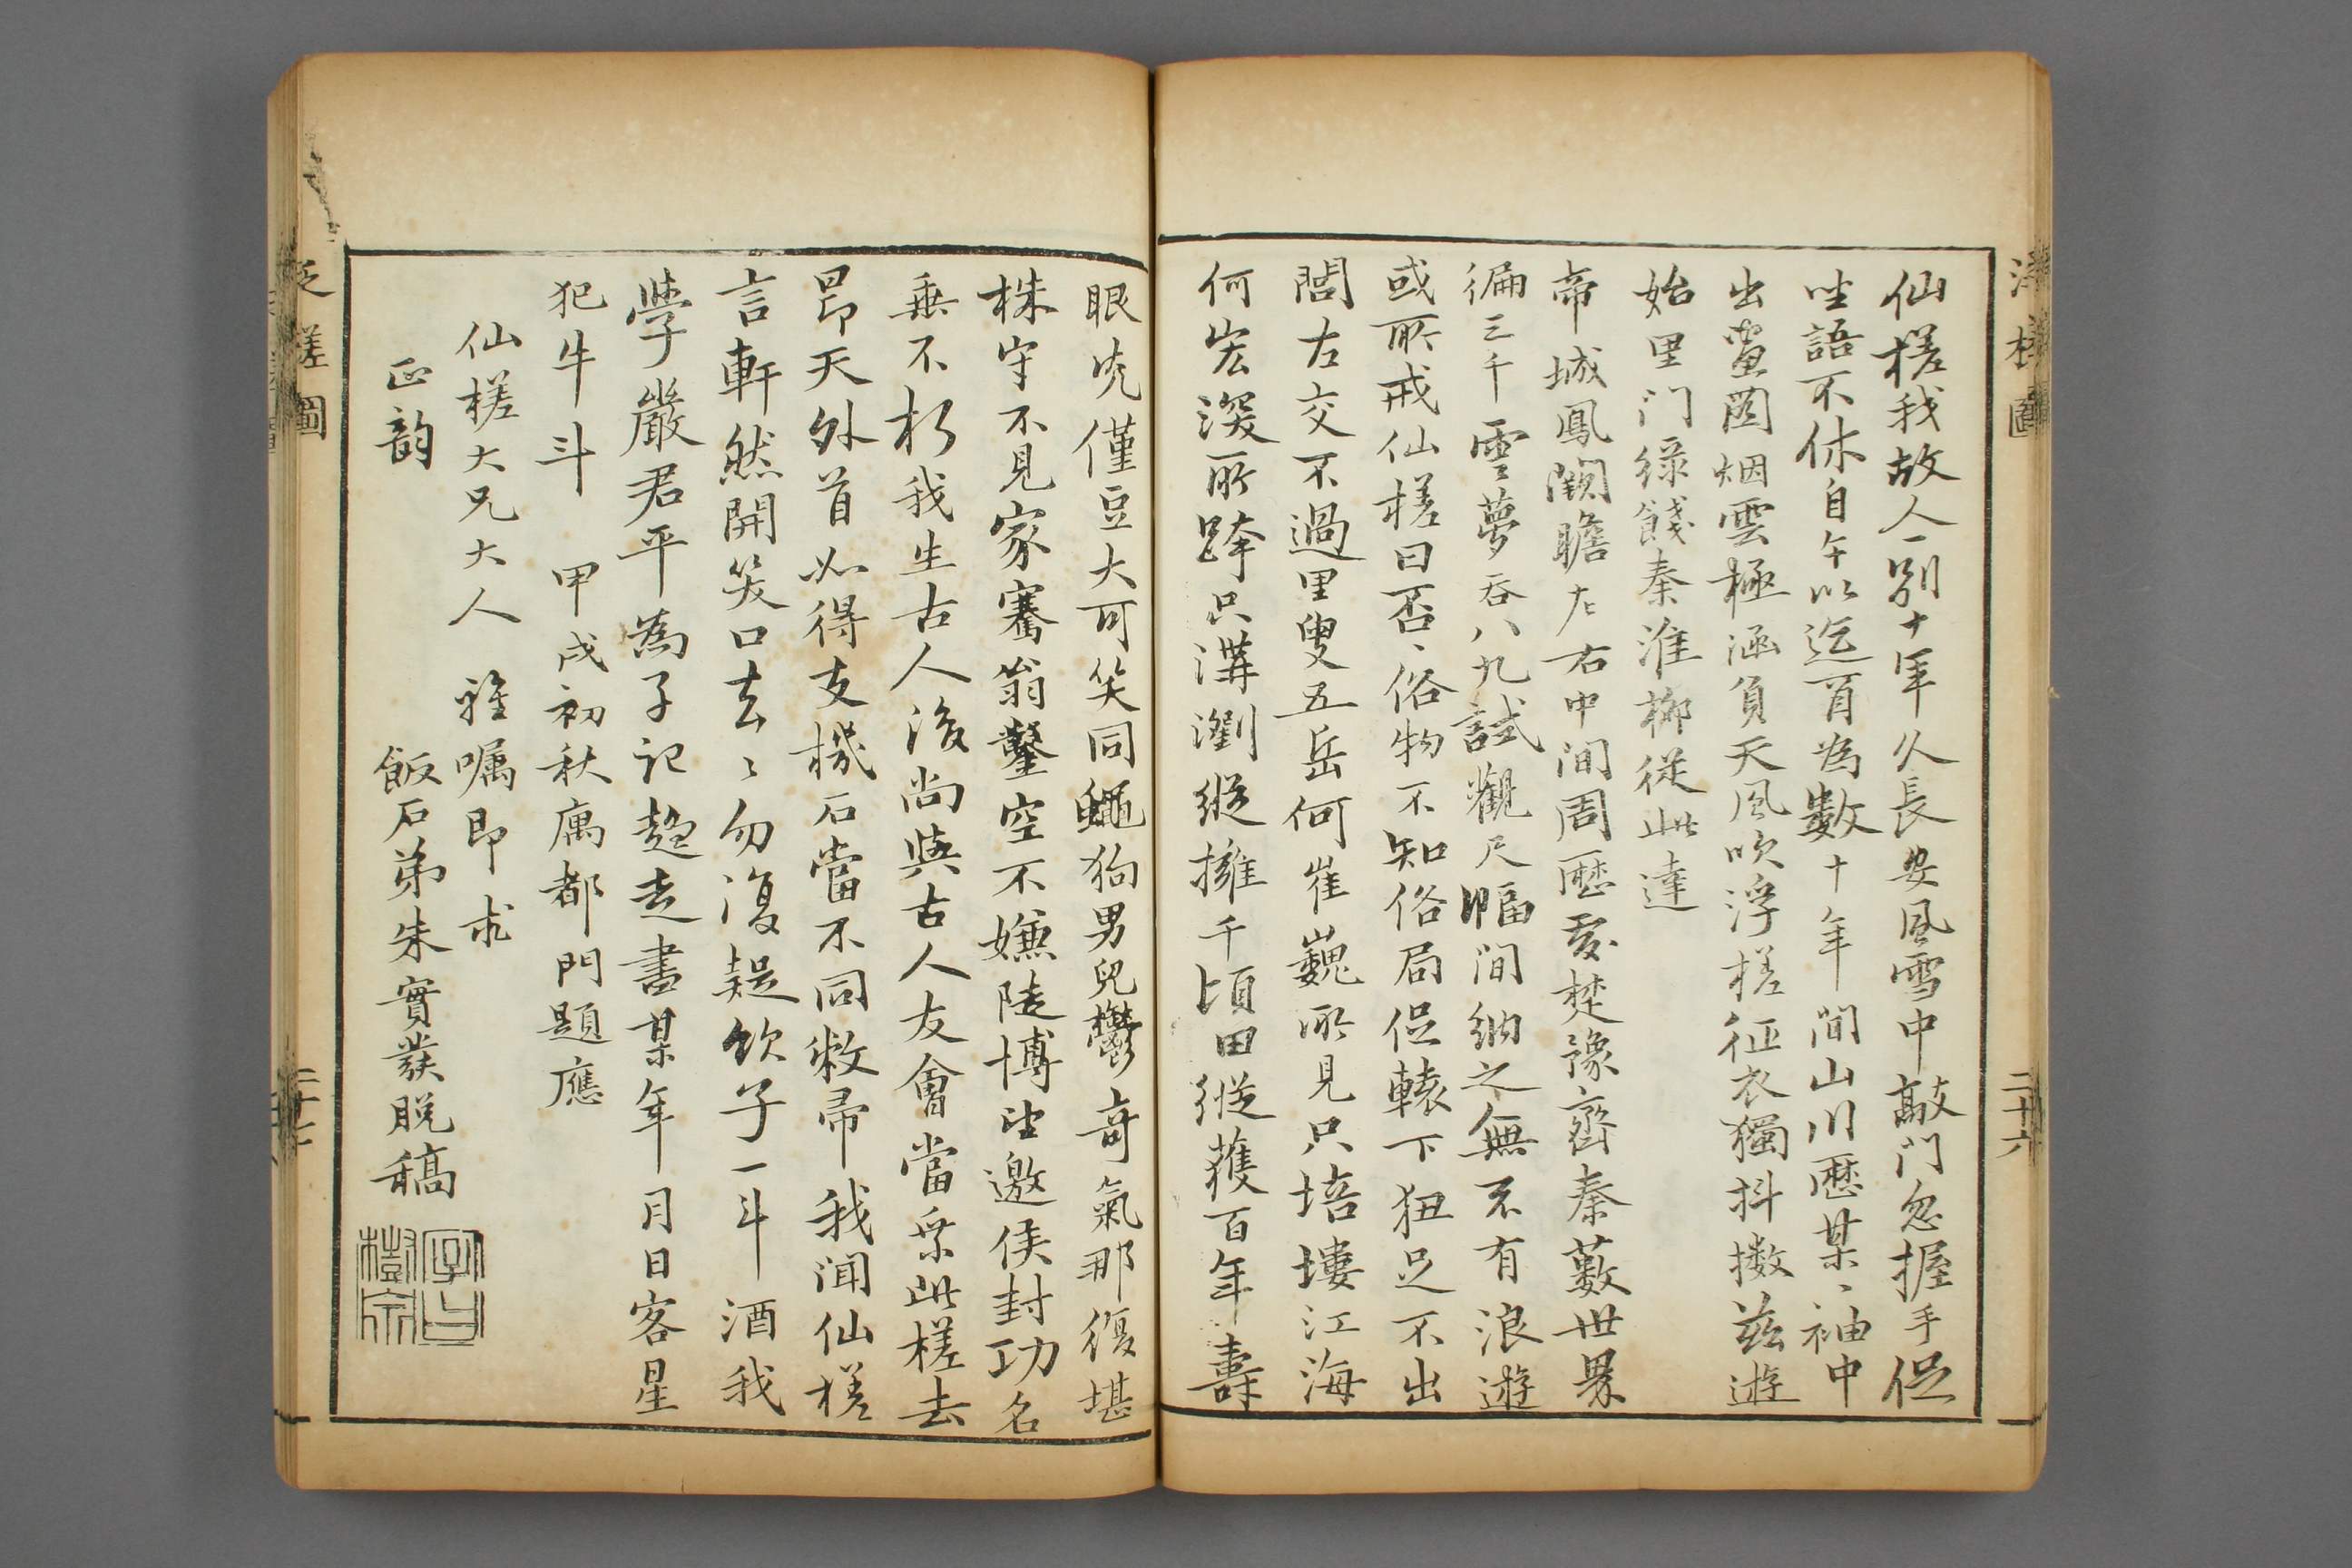 仙槎我故人一別十年久長安風雪中敲門忽握手促
坐語不休自午以迄酉為數十年間山川歷某某袖中
出畫圖烟雲極涵負天風吹浮槎征衣獨抖擻茲遊
始里门綠餞秦淮柳從此達
帝城鳳闕瞻左右中间周歷爰楚豫齊秦藪世界
徧三千雲夢吞八九試觀尺幅间納之無不有浪遊
或所戒仙槎曰否否俗物不知俗局促轅下狃足不出
閭右交不過里叟五岳何崔巍所見只培塿江海
何宏深所跨只溝瀏縱擁千頃田縱獲百年壽
眼光僅豆大可笑同蠅狗男兒鬱奇氣那復堪
株守不見家騫翁鑿空不嫌陡博望邀侯封功名
垂不朽我生古人後尚與古人友會當乘此槎去
昂天外首必得支機石當不同敝帚我闻仙槎
言軒然開笑口去去勿復疑飲子一斗酒我
學嚴君平為子記趨走書某年月日客星
犯牛斗 甲戌初秋寓都門題應
仙槎大兄大人 雅囑即求
正韵 飯石弟朱實發脱稿
泛槎圖
二十六
泛槎圖
二十七